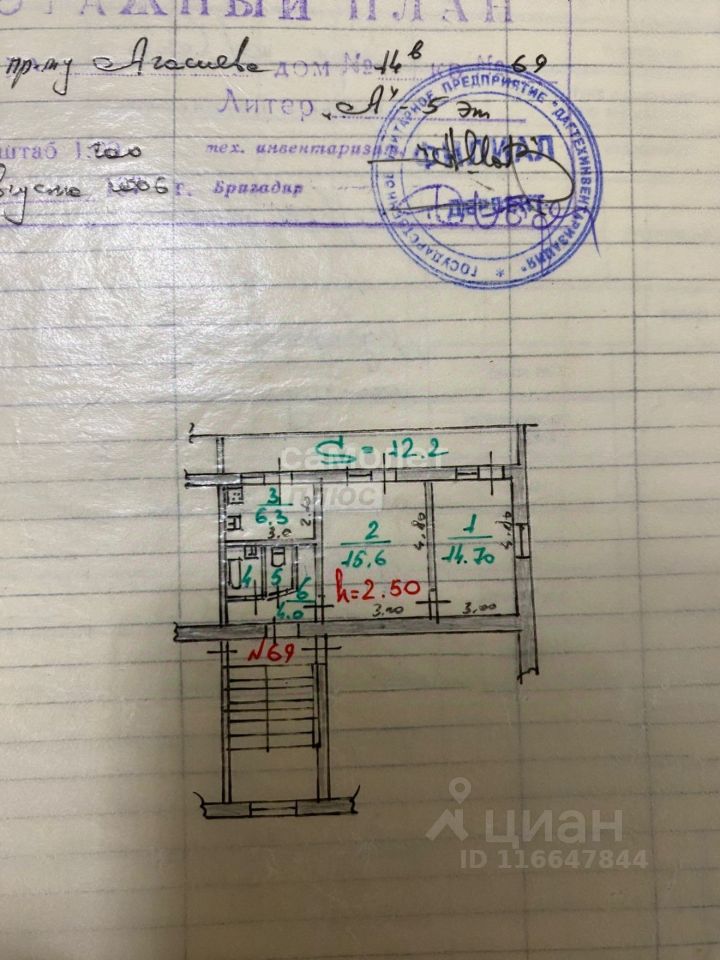 ЭТАЖНЫЙ ПЛАН
пр-ту Агасиева дом № 14в кв. № 69
Литер „А" - 5 эт
штаб 1: 200 тех. инвентаризац
августа 2006 г. Бригадир
ГОСУДАРСТВЕННОЕ УНИТАРНОЕ ПРЕДПРИЯТИЕ "ДАГТЕХИНВЕНТАРИЗАЦИЯ"
ФИЛИАЛ
S = 12.2
самолет
плюс
3
6.3
2.10
3.0
2
15.6
4.80
1
14.70
4.90
4
5
6
4.0
h=2.50
3.20
3.00
№69
циан
ID 116647844